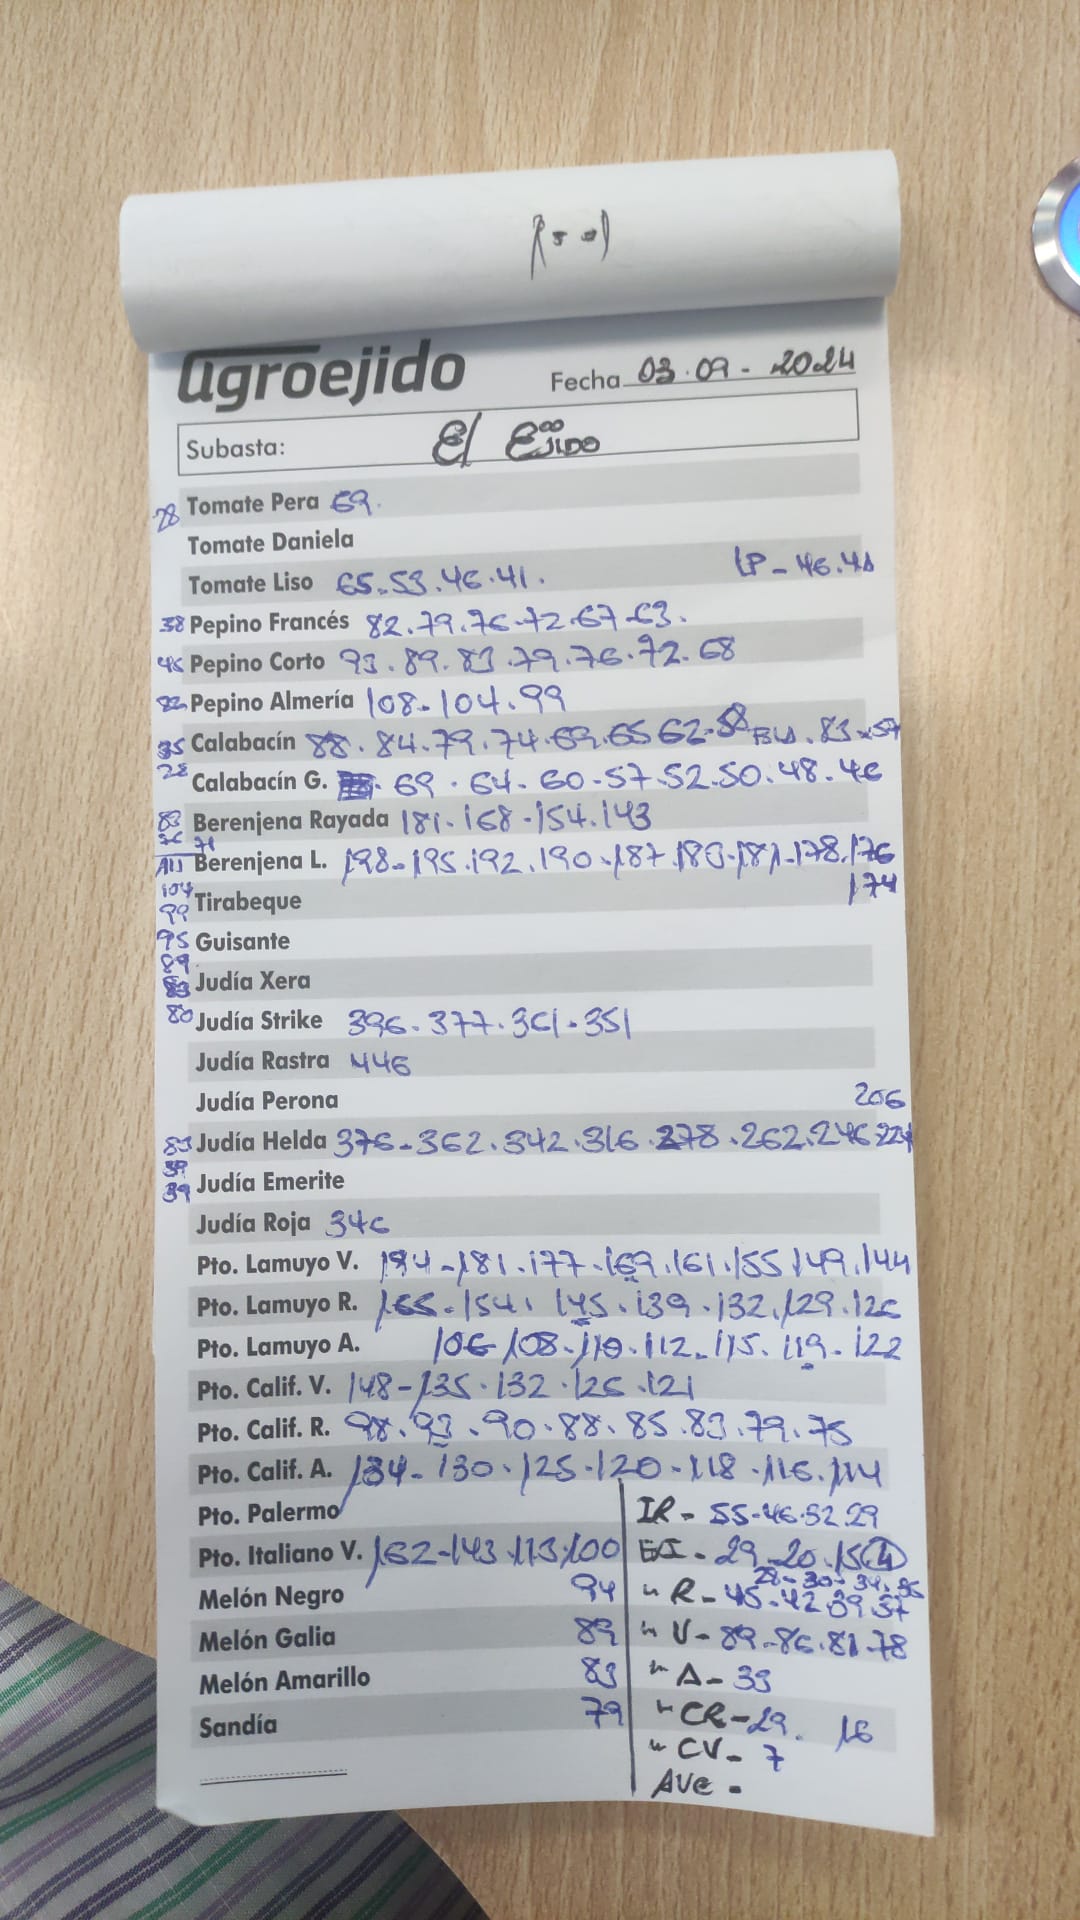 agroejido
Fecha 03.09-2024
Subasta: El Ejido
28 Tomate Pera 69.
Tomate Daniela
Tomate Liso 65-53.46.41. LP-46.41
38 Pepino Francés 82.79.76-72.67-63.
46 Pepino Corto 93.89.83.79.76.72.68
Pepino Almería 108-104.99
35 Calabacín 88.84.79.74.69.65 62-58 . 83x57
28 Calabacín G. 69.64-60-57.52.50.48.46
83 Berenjena Rayada 181.168-154.143
76 71
Berenjena L. 198-195.192.190.187.183.181-178.176
104 174
99 Tirabeque
95 Guisante
89
83 Judía Xera
80 Judía Strike 396.377.361.351
Judía Rastra 446
Judía Perona
206
83 Judía Helda 376-362.342.316.278.262.246.224
59
39 Judía Emerite
Judía Roja 346
Pto. Lamuyo V. 194-181.177.169.161.155.149.144
Pto. Lamuyo R. 165.154. 145.139.132.129.126
Pto. Lamuyo A. 106 108.110.112.115.119.122
Pto. Calif. V. 148-135.132.126.121
Pto. Calif. R. 98.93.90.88.85.83.79.75
Pto. Calif. A. 134-130.125.120-118.116.114
Pto. Palermo IR- 55-46.32.29
Pto. Italiano V. 162-143.113.100 EI-29-20.15
28-30-34.36
Melón Negro 94 " R-45-42.39.37
Melón Galia 89 " V-89-86.81.78
Melón Amarillo 83 " A-33
Sandía 79 " CR-29. 16
" CV- 7
AVE-